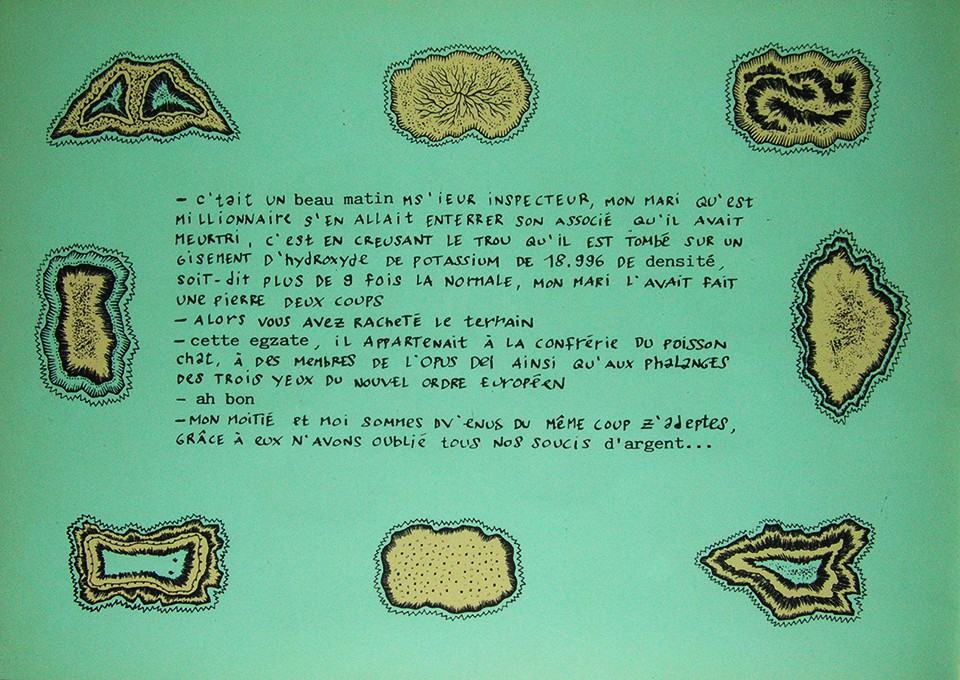 - c'tait UN beau matin MS'IEUR INSPECTEUR, MON MARI QU'Est
MILLIONNAIRE S'EN ALLAIT ENTERRER SON ASSOCIÉ QU'IL AVAIT
MEURTRI, C'Est EN CREUSANT LE TROU QU'IL EST TOMBÉ SUR UN
GISEMENT D'hydROXyde DE POTASSIUM DE 18.996 DE densité,
SOIT-dit PLUS DE 9 FOIS LA NORMALE, MON MARI L'AVAIT FAIT
UNE PIERRE DEUX COUPS
- ALORS VOUS AVEZ RACHETÉ LE terrain
- cette egzate, IL APPARTENAIT À LA CONFRÉRIE DU POISSON
chat, À DES MEMBRES DE L'OPUS DEI AINSI QU'AUX PhALANGES
DES TROIS YEUX DU NOUVEL ORDRE EUROPÉEN
- ah bon
- MON MOITIÉ Et MOI SOMMES DV'ENUS DU MÊME COUP Z'adeptes,
GRÂCE À EUX N'AVONS OUBLIÉ TOUS NOS SOUCIS d'argent...